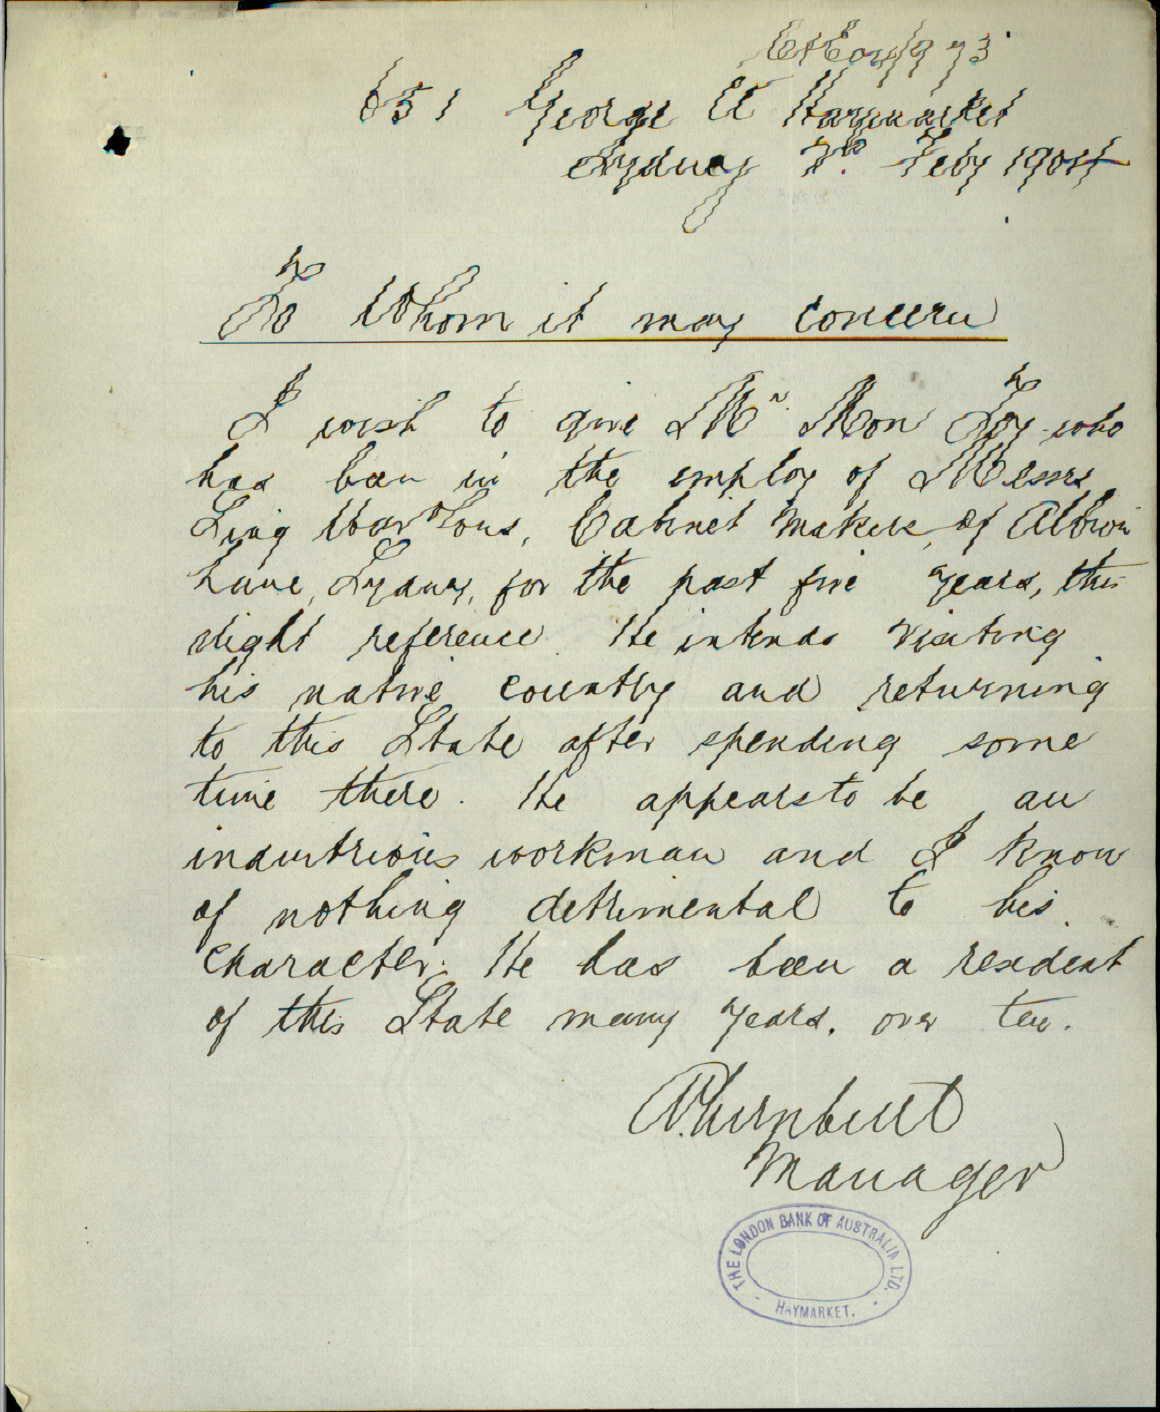 651 George St Haymarket
Sydney Feby 1904
To Whom it may concern
I wish to give Mr. Mon Foy who
has been in the employ of Messrs
Sing War & Sons, Cabinet Makers, of Albion
Lane, Sydney, for the past five years, this
slight reference. He intends visiting
his native country and returning
to this State after spending some
time there. He appears to be an
industrious workman and I know
of nothing detrimental to his
character. He has been a resident
of this State many years, over ten.
Manager
THE LONDON BANK OF AUSTRALIA LTD.
HAYMARKET.